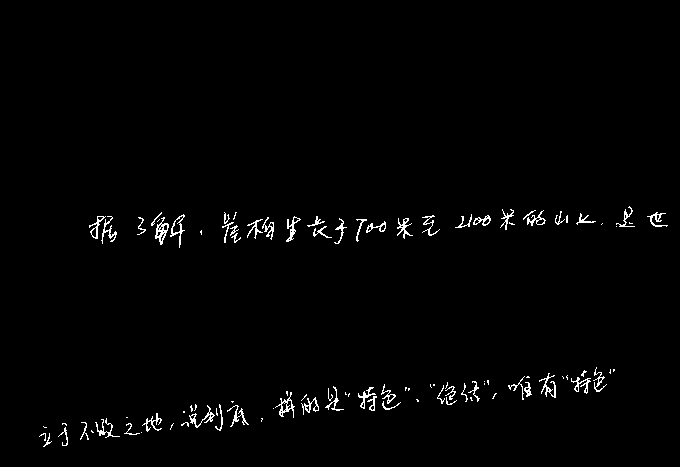 据了解，崖柏生长于700米至2100米的山上，是世
立于不败之地，说到底，拼的是“特色”、“绝活”，唯有“特色”